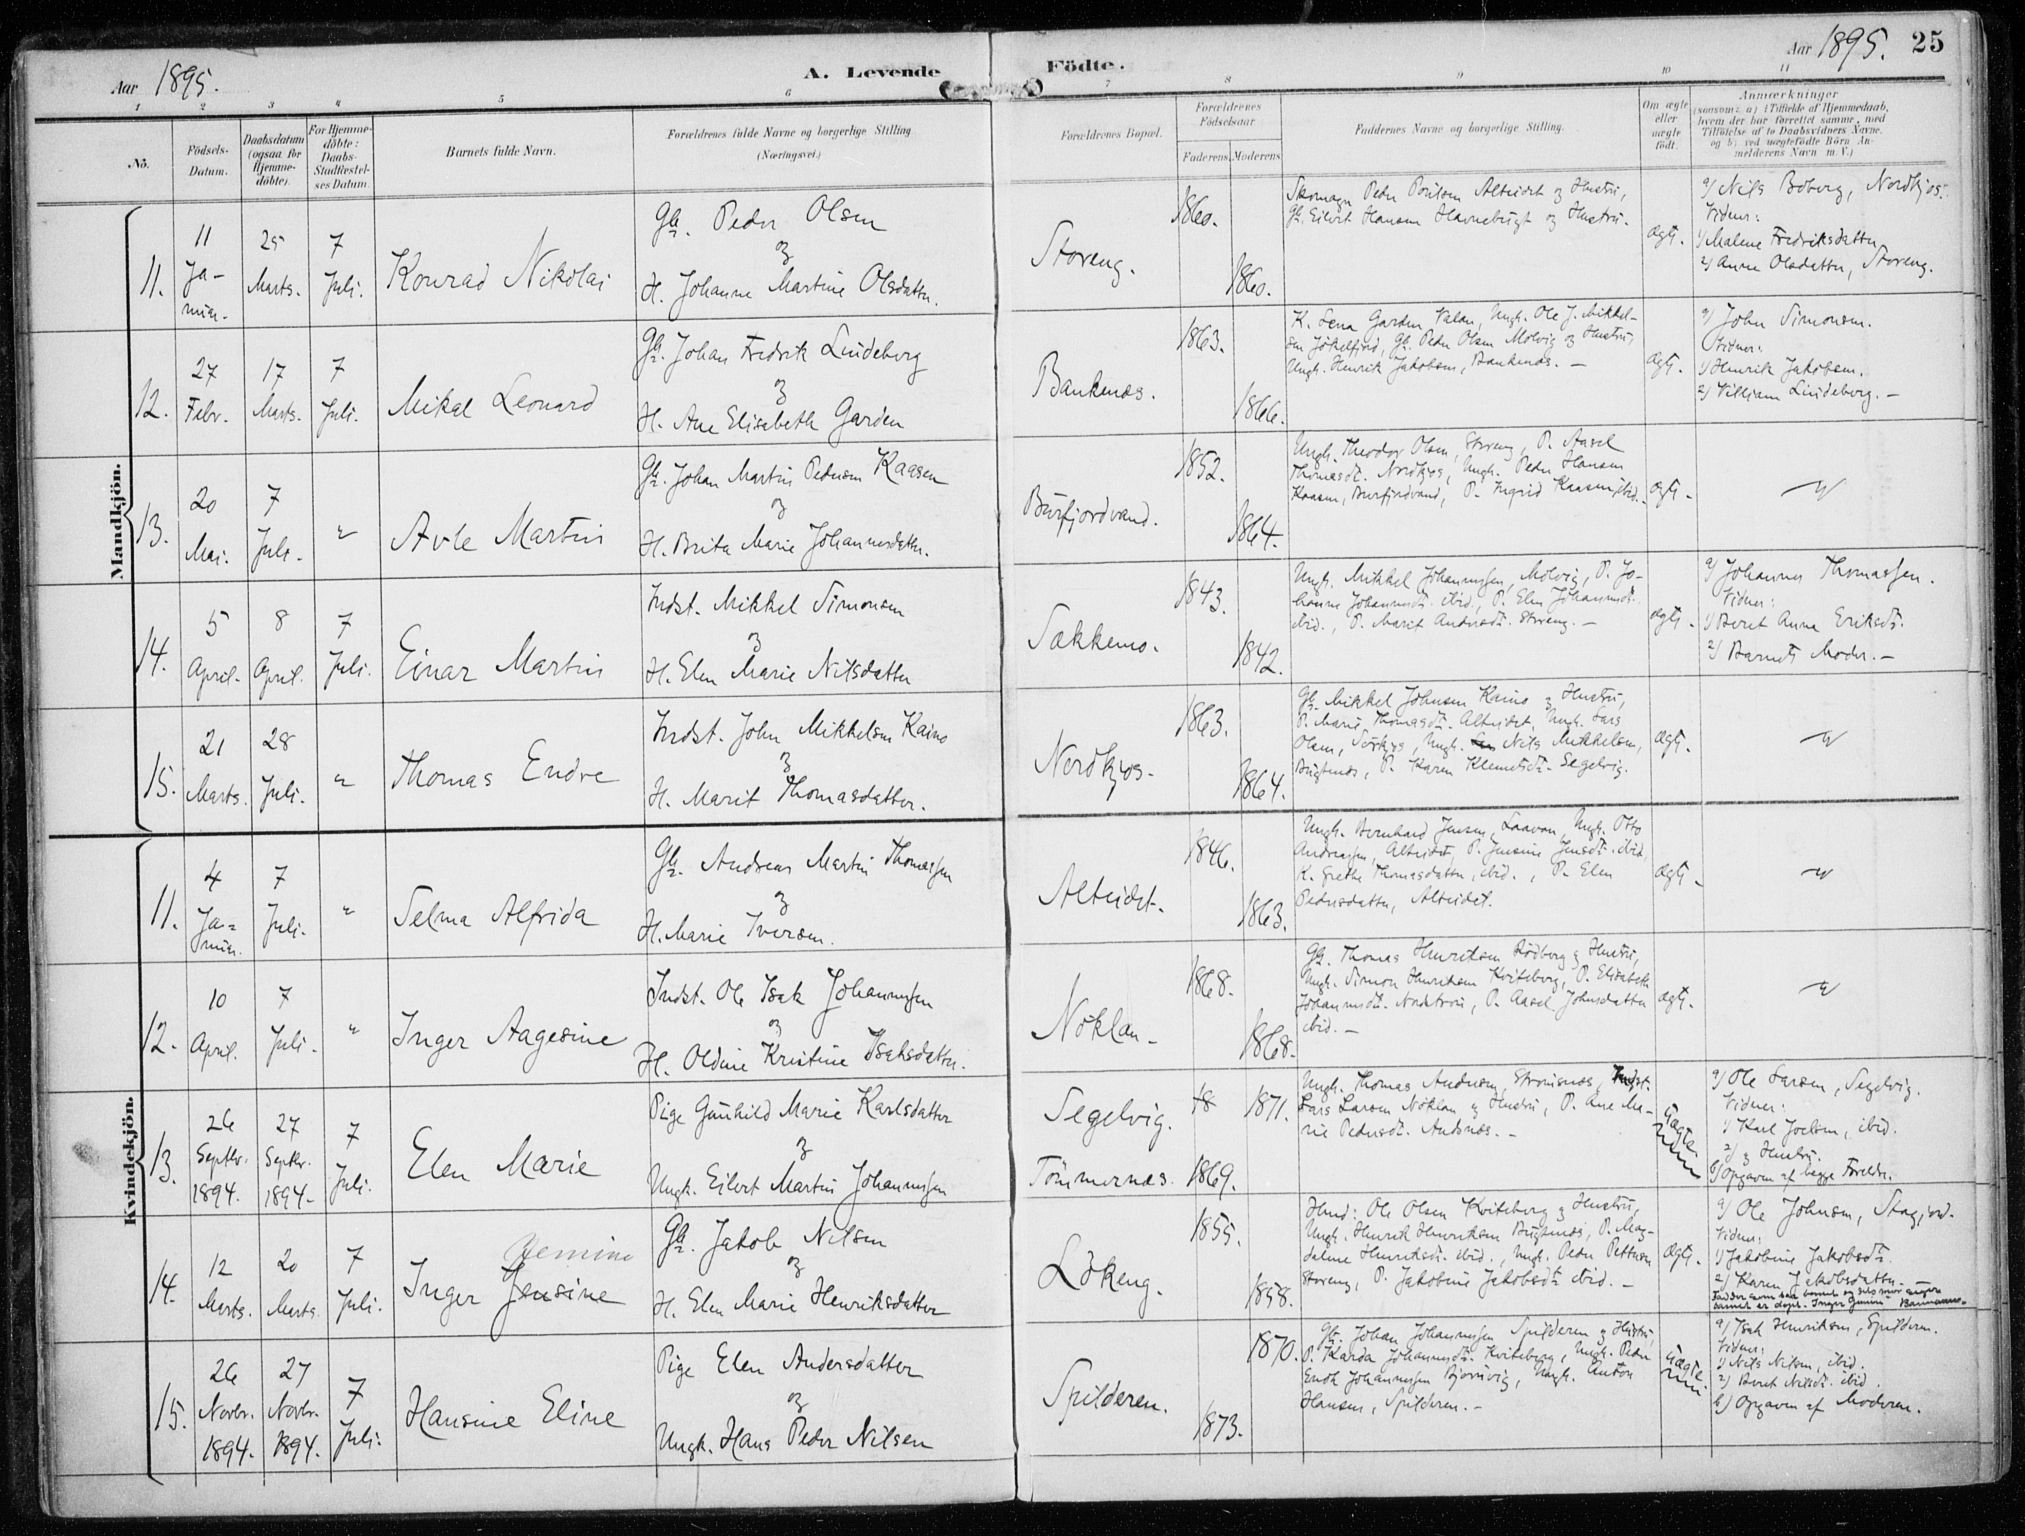 Aar 1895.
A. Levende
Födte.
Aar 1895. 25
1 2 3 4 5 6 7 8 9 10 11
Nö.
Födsels-
Datum.
Daabsdatum
(ogsaa for
Hjemme-
döbte).
For Hjemme-
döbte:
Daabs-
Stadfæstel-
ses Datum.
Barnets fulde Navn.
Forældrenes fulde Navne og borgerlige Stilling
(Næringsvei.)
Forældrenes Bopæl.
Forældrenes
Födselsaar
Faderens Moderens
Faddernes Navne og borgerlige Stilling.
Om ægte
eller
uægte
födt.
Anmærkninger
(saasom: a) i Tilfælde af Hjemmedaab,
hvem der har forrettet samme, med
Tilföielse af to Daabsvidners Navne,
og b) ved uægtefödte Börn An-
melderens Navn m. V.)
Mandkjön.
11.
11
Ja-
nuar.
25
Marts.
7
Juli.
Konrad Nikolai
Gb. Peder Olsen
og
H. Johanne Martine Olsdatter.
Storeng.
1860.
1860.
Skomager Peder Poulsen Alteidet og Hustru,
Gb. Eilert Hansen Havnebugt og Hustru.
ægt.
a) Nils Boberg, Nordkjos.
Vidner:
1) Malene Fredriksdatter
2) Anne Olsdatter, Storeng.
12.
27
Febr.
17
Marts.
7
Juli.
Mikal Leonard
Gb. Johan Fredrik Lindeberg
og
H. Ane Elisabeth Garden
Bankenæs.
1863.
1866.
K. Lena Garden Valan, Ungk. Ole J. Mikkel-
sen Jökelfjord, Gb. Peder Olsen Molvig og Hustru,
Ungk. Henrik Jakobsen, Bankenæs. —
ægt.
a) John Simonsen.
Vidner:
1) Henrik Jakobsen.
2) Villiam Lindeberg. —
13.
20
Mai.
7
Juli.
"
Avle Martin
Gb. Johan Martin Pedersen Kaasen
og
H. Brita Marie Johannesdatter.
Burfjordvand.
1852.
1864.
Ungk. Theodor Olsen, Storeng, P. Aasel
Thomasdt. Nordkjos, Ungk. Peder Hansen
Kaasen, Burfjordvand, P. Ingrid Kaasen, ibid.
ægt.
"
14.
5
April.
8
April.
7
Juli.
Einar Martin
Indst. Mikkel Simonsen
og
H. Elen Marie Nilsdatter
Sækkemo.
1843.
1842.
Ungk. Mikkel Johannessen, Molvig, P. Jo-
hanne Johannesdt. ibid., P. Elen Johannesdt.
ibid., P. Marit Andersdt. Storeng. —
ægt.
a) Johannes Thomassen.
Vidner:
1) Beret Anna Eriksdt.
2) Barnets Moder. —
15.
21
Marts.
28
Juli.
"
Thomas Endre
Indst. John Mikkelsen Kaino
og
H. Marit Thomasdatter.
Nordkjos.
1863.
1864.
Gb. Mikkel Johnsen Kaino og Hustru,
P. Marie Thomasdt. Alteidet, Ungk. Lars
Olsen, Sörkjos, Ungk. Nils Mikkelsen,
Bugtnæs, P. Karen Klemetsdt. Segelvig.
ægt.
"
Kvindekjön.
11.
4
Ja-
nuar.
7
Juli.
"
Selma Alfrida
Gb. Andreas Martin Thomassen
og
H. Marie Iversen.
Alteidet.
1846.
1863.
Ungk. Bernhard Jensen, Laavan, Ungk. Otto
Andreassen, Alteidet, P. Jensine Jensdt. ibid,
K. Grethe Thomasdatter, ibid., P. Elen
Pedersdatter, Alteidet.
ægt.
"
12.
10
April.
7
Juli.
"
Inger Aagesine
Indst. Ole Isak Johannessen
og
H. Oldine Kristine Isaksdatter.
Nöklan.
1868.
1868.
Gb. Thomas Henriksen Rödberg og Hustru,
Ungk. Simon Henriksen Kviteberg, P. Elisabeth
Johannesdt. Nordströn, P. Aasel Johnsdatter
ibid. —
ægt.
"
13.
26
Septbr.
1894.
27
Septbr.
1894.
7
Juli.
Elen Marie
Pige Gunhild Marie Karlsdatter
og
Ungk. Eilert Martin Johannessen
Segelvig.
Tömmernæs.
18
1869.
1871.
Ungk. Thomas Andersen, Strömsnæs, Indst.
Lars Larsen Nöklan og Hustru, P. Ane Ma-
rie Pedersdt. Andsnæs. —
Uægte
a) Ole Larsen, Segelvig.
Vidner:
1) Karl Joelsen, ibid.
2) og Hustru.
b) Opgaven af begge Foreldre.
14.
12
Marts.
20
Marts.
7
Juli.
Jemine
Inger Jensine
Gb. Jakob Nilsen
og
H. Elen Marie Henriksdatter
Lökeng.
1855.
1858.
Husd: Ole Olsen Kviteberg og Hustru,
Ungk. Henrik Henriksen Bugtnæs, P. Mag-
dalene Henriksdt. ibid., Ungk. Peder Pettersen
Storeng, P. Jakobine Jakobsdt. ibid. —
ægt.
a) Ole Johnsen, Stagfjord.
Vidner:
1) Jakobine Jakobsdt.
2) Karen Jakobsdatter.
15.
26
Novbr.
1894.
27
Novbr.
1894.
7
Juli.
Hansine Eline
Pige Elen Andersdatter
og
Ungk. Hans Peder Nilsen
Spilderen.
1873.
1870.
Gb. Johan Johannessen Spilderen og Hustru,
P. Karda Johannesdt. Kviteberg, Ungk. Peder
Enok Johannessen Björnvig, Ungk. Anton
Hansen, Spilderen. —
Uægte
a) Isak Henriksen, Spilderen.
Vidner:
1) Nils Nilsen, ibid.
2) Beret Nilsdt. ibid.
b) Opgaven af Moderen.